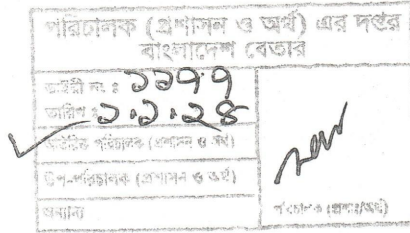 পরিচালক (প্রশাসন ও অর্থ) এর দপ্তর
বাংলাদেশ বেতার
ডাইরী নং : ১১৭৭
তারিখ : ২.১.২৪
অতিরিক্ত পরিচালক (প্রশাসন ও অর্থ)
উপ-পরিচালক (প্রশাসন ও অর্থ)
অন্যান্য
পরিচালক (প্রশাঃ/অর্থ)